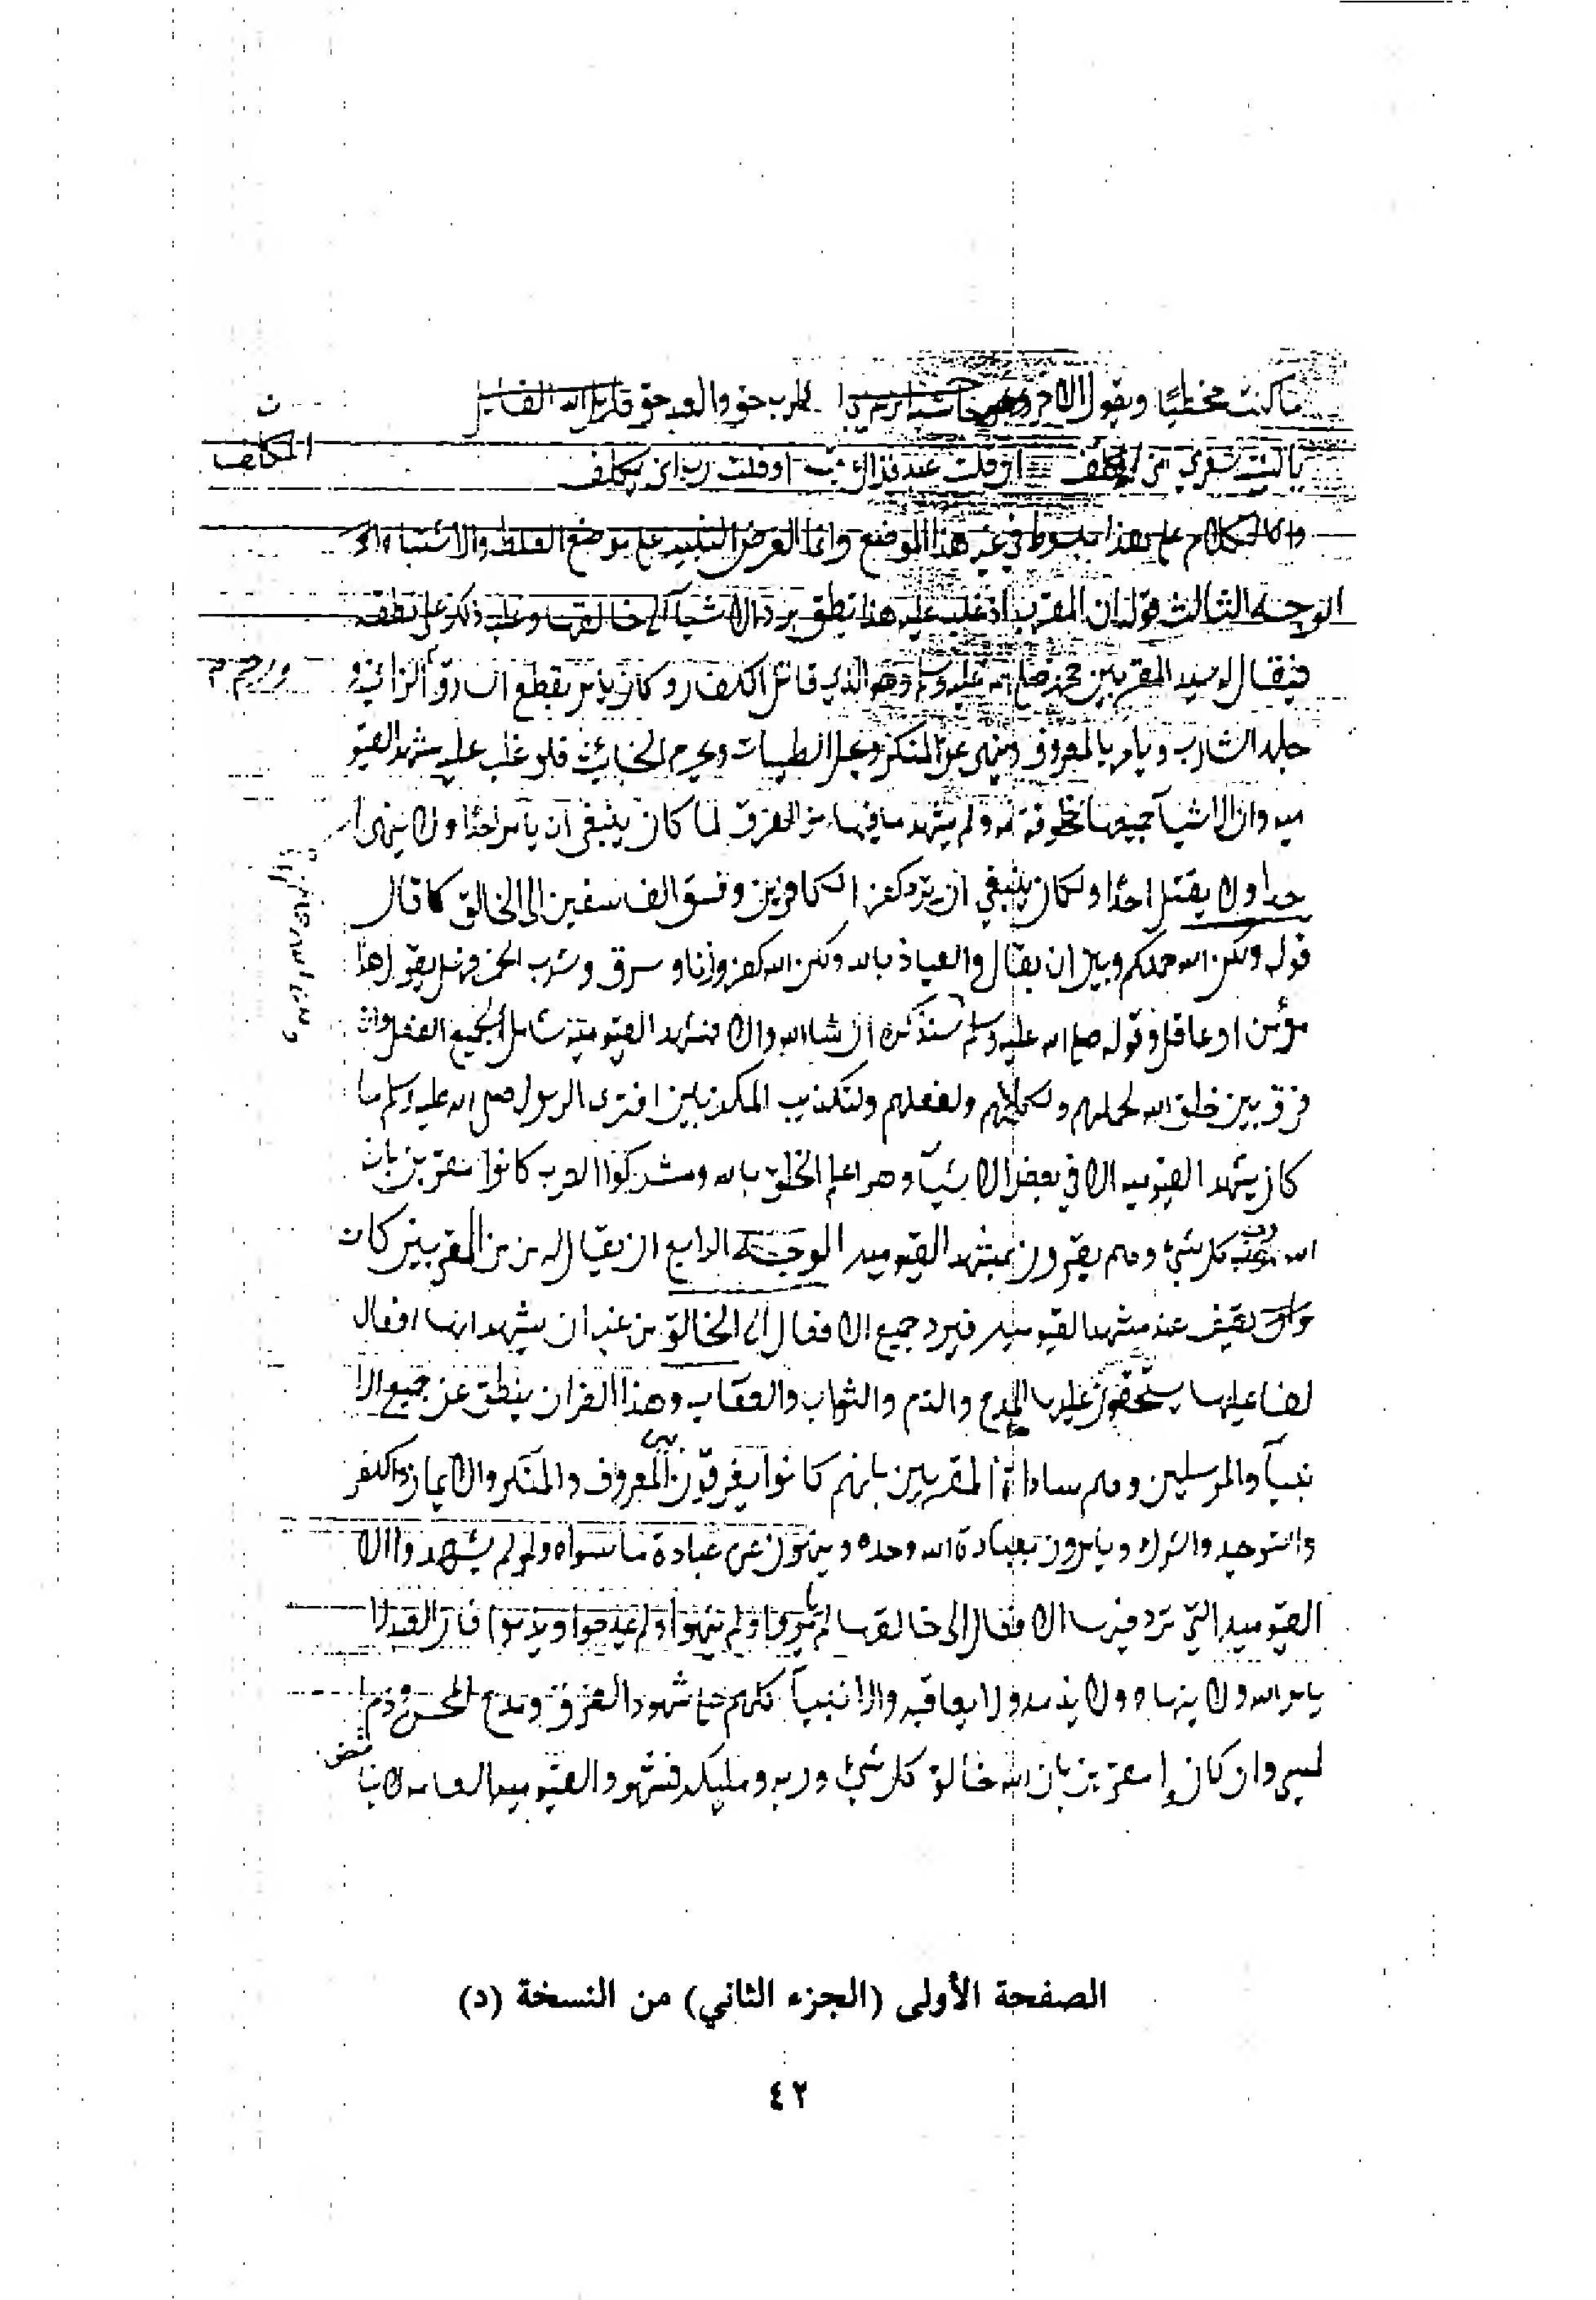 ما كنت مخطيًا ويقول الاخر الرب حق والعبد حق
يا ليت شعري من المكلف ان قلت عبد فذاك رب او قلت رب انى يكلف
المكلف
والكلام على هذا مبسوط في غير هذا الموضع وانما الغرض التنبيه على موضع الغلط والاشتباه
الوجه الثالث قوله ان المقرب اذ غلب عليه هذا نطق برد الاشيآ الى خالقها وغلب ذكره على نطقه
فيقال له سيد المقربين محمد صلى الله عليه وسلم وهو الذي قاتل الكفار وكان يأمر بقطع السارق ورجم الزاني و
جلد الشارب ويامر بالمعروف وينهى عن المنكر ويحل الطيبات ويحرم الخبائث فلو غلب عليه مشهد القيو
ميه وان الاشيآ جميعها مخلوقة له ولم يشهد ما فيها من الفرق لما كان ينبغي ان يأمر احدًا ولا ينهى ا
حدا ولا يقتل احدًا ولكان ينبغي ان يرد كفر الكافرين وفسق الفاسقين الى الخالق كما قال
قوله ولكن الله حملكم وبين ان يقال والعياذ بالله ولكن الله كفر وزنا وسرق وشرب الخمر وهل يقول هذا
مؤمن او عاقل وقوله صلى الله عليه وسلم سنذكره ان شا الله والا فمشهد القيومية شامل لجميع الفعل وان
فرق بين خلق الله لحملهم ولكلامهم ولفعلهم ولتكذيب المكذبين افترى الرسول صلى الله عليه وسلم ما
كان يشهد القيوميه الا في بعض الاشيآ وهو اعلم الخلق بالله ومشركوا العرب كانوا مقرين بان
الله رب كل شيء وهم يقرون بمشهد القيوميه الوجه الرابع ان يقال له من من المقربين كان
يقف عند مشهد القيوميه فيرد جميع الافعال الى الخالق من غير ان يشهد انها افعال
لفاعليها يستحقون عليها المدح والذم والثواب والعقاب وهذا القران ينطق عن جميع الا
نبيآ والمرسلين وهم سادات المقربين بانهم كانوا يفرقون بين المعروف والمنكر والايمان والكفر
والتوحيد والشرك ويامرون بعبادة الله وحده وينهون عن عبادة ما سواه ولو لم يشهدوا الا
القيوميه التي ترد فيها الافعال الى خالقها لم يأمروا ولم ينهوا ولم يمدحوا ويذموا فان العبد لا
يامر الله ولا ينهاه ولا يذمه ولا يعاقبه والانبيآ كلهم على شهود الفرق ومدح المحسن وذم
لمسي وان كانوا مقرين بان الله خالق كل شيء وربه ومليكه فشهود القيوميه العامه لا يناقض
الصفحة الأولى (الجزء الثاني) من النسخة (د)
٤٢